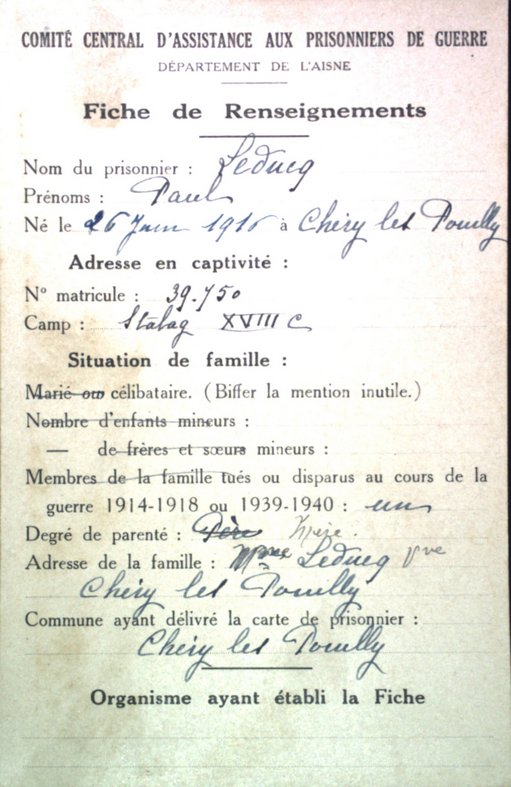 COMITÉ CENTRAL D'ASSISTANCE AUX PRISONNIERS DE GUERRE
DÉPARTEMENT DE L'AISNE
Fiche de Renseignements
Nom du prisonnier : Leducq
Prénoms : Paul
Né le 26 Juin 1916 à Chéry les Pouilly
Adresse en captivité :
N° matricule : 39.750
Camp : Stalag XVIII C
Situation de famille :
Marié ou célibataire. (Biffer la mention inutile.)
Nombre d'enfants mineurs :
— de frères et sœurs mineurs :
Membres de la famille tués ou disparus au cours de la
guerre 1914-1918 ou 1939-1940 : un
Degré de parenté : Père Mère.
Adresse de la famille : Mme Leducq Vve
Chéry les Pouilly
Commune ayant délivré la carte de prisonnier :
Chéry les Pouilly
Organisme ayant établi la Fiche